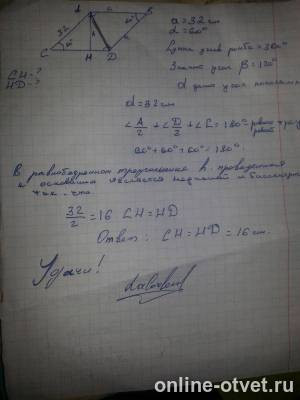 A a B
32
60°
C H D
CH-?
HD-?
a = 32 см
d = 60°
Сумма углов ромба = 360°
Значит угол β = 120°
d = 32 см
∠A/2 + ∠D/2 + ∠C = 180°
60° + 60° + 60° = 180°
В равнобедренном треугольнике h, проведенная
к основанию является медианой и биссектр
так что
32/2 = 16 CH = HD
Ответ: CH = HD = 16 см.
Удачи!
online-otvet.ru